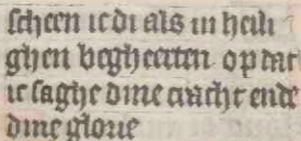 scheen ic di als in heili
ghen begheerten op dat
ic saghe dine cracht ende
dine glorie